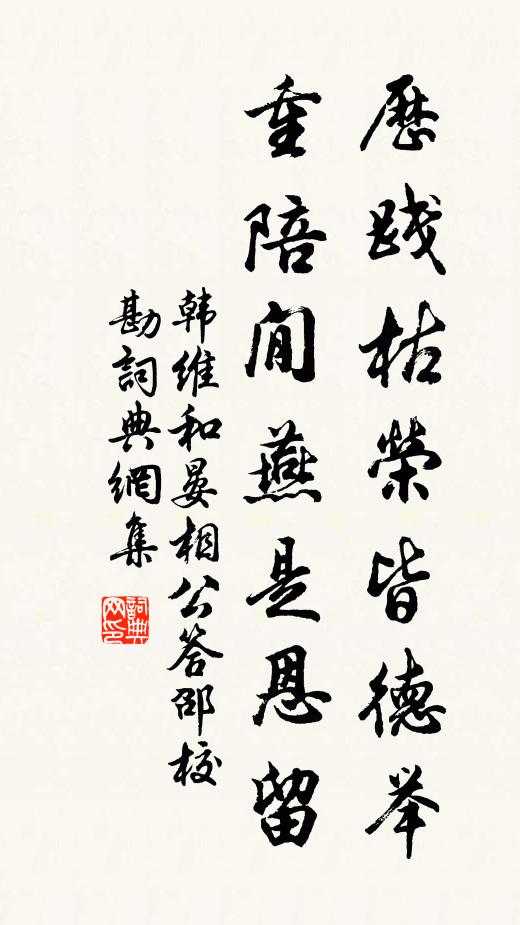 歷踐枯榮皆德举
重陪閒燕是恩留
韩維和晏相公答邵校
勘詞典網集
詞典网印